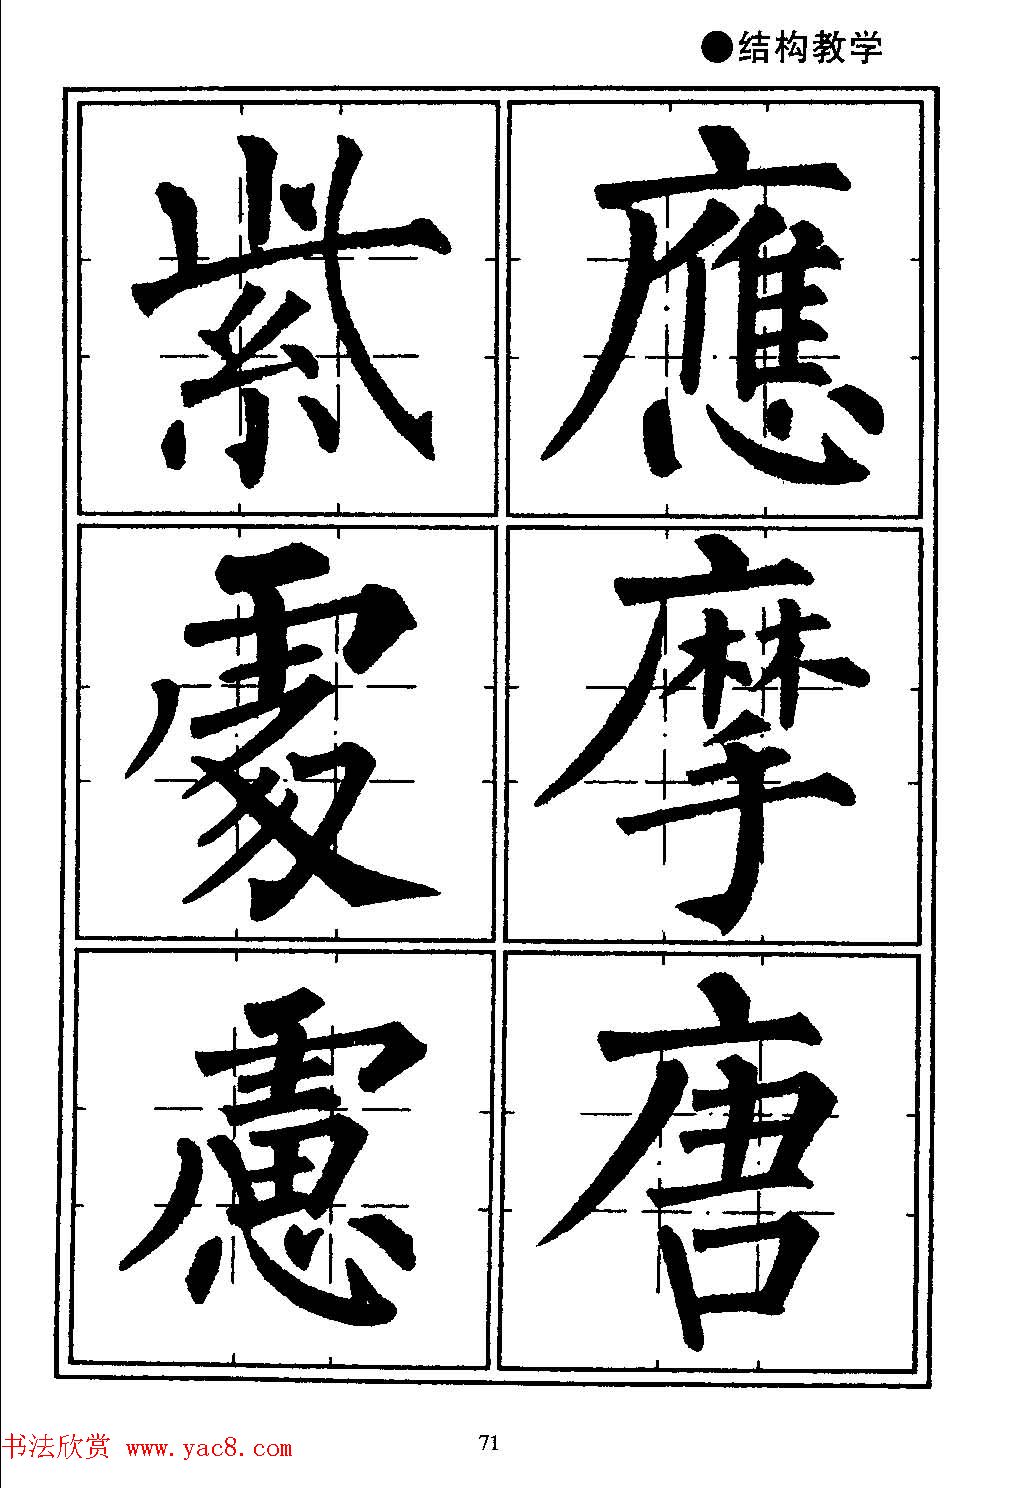 ●结构教学
應
摩
唐
紫
慮
书法欣赏 www.yac8.com
71